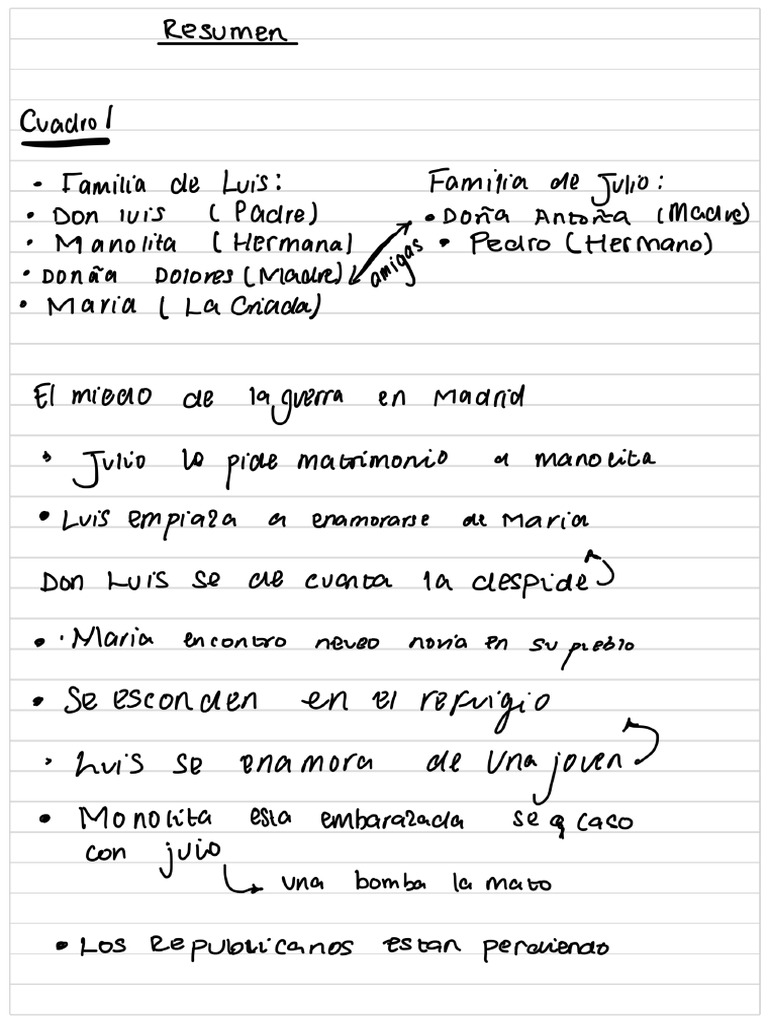 Resumen
Cuadro 1
• Familia de Luis:
• Don luis (Padre)
• Manolita (Hermana)
• Donña Dolores (Madre)
• Maria (La Criada)
amigas
Familia de Julio:
• Doña Antoña (Madre)
• Pedro (Hermano)
El miedo de la guerra en Madrid
• Julio le pide matrimonio a manolita
• Luis empiaza a enamorarse de Maria
Don Luis se de cuenta la despide
• Maria encontro nuevo novia en su pueblo
• Se esconden en el refugio
• Luis se enamora de una joven
• Monolita esta embarazada se caso
con julio
una bomba la mato
• Los Republicanos estan perdiendo